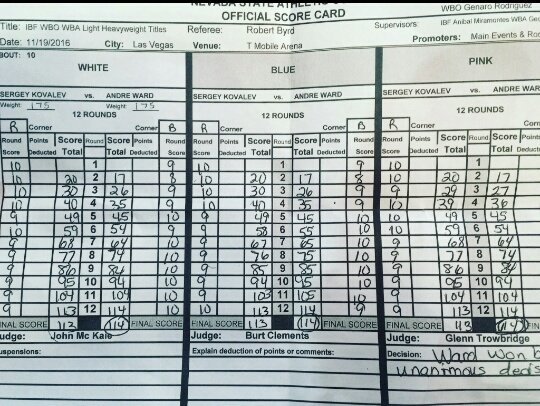 NEVADA STATE ATHLETIC
OFFICIAL SCORE CARD
WBO Genaro Rodriguez
Title: IBF WBO WBA Light Heavyweight Titles Referee: Robert Byrd Supervisors IBF Anibal Miramontes WBA Ge
Date: 11/19/2016 City: Las Vegas Venue: T Mobile Arena Promoters: Main Events & Ro
BOUT: 10
WHITE BLUE PINK
SERGEY KOVALEV vs. ANDRE WARD SERGEY KOVALEV vs. ANDRE WARD SERGEY KOVALEV vs. ANDRE WARD
Weight: 175 Weight: 175
12 ROUNDS 12 ROUNDS 12 ROUNDS
R Corner Corner B R Corner Corner B R Corner Corn
Round Points Score Round Score Points Round Round Points Score Round Score Points Round Round Points Score Round Score Points
Score Deducted Total Total Deducted Score Score Deducted Total Total Deducted Score Score Deducted Total Total Deducted
10 1 9 10 1 9 10 1
10 20 2 17 8 10 20 2 17 8 10 20 2 17
10 30 3 26 9 10 30 3 26 9 9 29 3 27
10 40 4 35 9 10 40 4 35 9 10 39 4 36
9 49 5 45 10 9 49 5 45 10 10 49 5 45
10 59 6 54 9 9 58 6 55 10 10 59 6 54
9 68 7 64 10 9 67 7 65 10 9 68 7 64
9 77 8 74 10 9 76 8 75 10 9 77 8 74
9 86 9 84 10 9 85 9 85 10 9 86 9 84
9 95 10 94 10 9 94 10 95 10 9 95 10 94
9 104 11 104 10 9 103 11 105 10 9 104 11 104
9 113 12 114 10 10 113 12 114 9 9 113 12 114
FINAL SCORE 113 114 FINAL SCORE FINAL SCORE 113 114 FINAL SCORE FINAL SCORE 113 114 FIN
Judge: John Mc Kaie Judge: Burt Clements Judge: Glenn Trowbridge
uspensions: Explain deduction of points or comments: Decision: Ward won b
unanimous decis